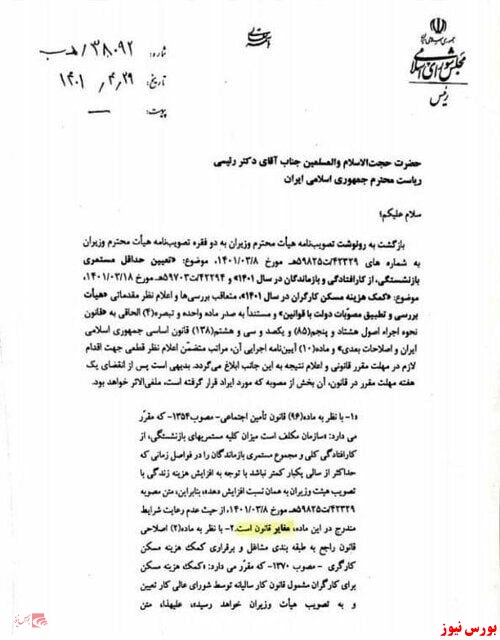 جمهوری اسلامی ایران
مجلس شورای اسلامی
رئیس
شماره: ۳۸۰۹۲/هـ ب
تاریخ: ۱۴۰۱/۴/۲۹
پیوست: —
حضرت حجت‌الاسلام والمسلمین جناب آقای دکتر رئیسی
ریاست محترم جمهوری اسلامی ایران
سلام علیکم؛
بازگشت به رونوشت تصویب‌نامه هیأت محترم وزیران به دو فقره تصویب‌نامه هیأت محترم وزیران
به شماره های ۴۲۳۲۹/ت۵۹۸۲۵هـ مورخ ۱۴۰۱/۰۳/۸، موضوع: «تعیین حداقل مستمری
بازنشستگی، از کارافتادگی و بازماندگان در سال ۱۴۰۱» و ۴۲۲۹۴/ت۵۹۷۰۳هـ مورخ ۱۴۰۱/۰۳/۱۸،
موضوع: «کمک هزینه مسکن کارگران در سال ۱۴۰۱»، متعاقب بررسی‌ها و اعلام نظر مقدماتی «هیأت
بررسی و تطبیق مصوّبات دولت با قوانین» و مستنداً به صدر ماده واحده و تبصره(۴) الحاقی به «قانون
نحوه اجراء اصول هشتاد و پنجم(۸۵) و یکصد و سی و هشتم(۱۳۸) قانون اساسی جمهوری اسلامی
ایران و اصلاحات بعدی» و ماده(۱۰) آیین‌نامه اجرایی آن، مراتب متضمّن اعلام نظر قطعی جهت اقدام
لازم در مهلت مقرر قانونی و اعلام نتیجه به این جانب ابلاغ می‌گردد. بدیهی است پس از انقضای یک
هفته مهلت مقرر در قانون، آن بخش از مصوبه که مورد ایراد قرار گرفته است، ملغی‌الاثر خواهد بود.
«۱- با نظر به ماده(۹۶) قانون تأمین اجتماعی- مصوب ۱۳۵۴- که مقرّر
می دارد: «سازمان مکلف است میزان کلیه مستمریهای بازنشستگی، از
کارافتادگی کلی و مجموع مستمری بازماندگان را در فواصل زمانی که
حداکثر از سالی یکبار کمتر نباشد با توجه به افزایش هزینه زندگی با
تصویب هیئت وزیران به همان نسبت افزایش دهد»، بنابراین، متن مصوبه
۴۲۳۲۹/ت۵۹۸۲۵هـ مورخ ۱۴۰۱/۰۳/۸، از حیث عدم رعایت شرایط
مندرج در این ماده، مغایر قانون است. ۲- با نظر به ماده(۲) اصلاحی
قانون راجع به طبقه بندی مشاغل و برقراری کمک هزینه مسکن
کارگری - مصوب ۱۳۷۰- که مقرّر می دارد: «کمک هزینه مسکن
برای کارگران مشمول قانون کار سالیانه توسط شورای عالی کار تعیین
و به تصویب هیأت وزیران خواهد رسید»، علیهذا، متن
بورس نیوز